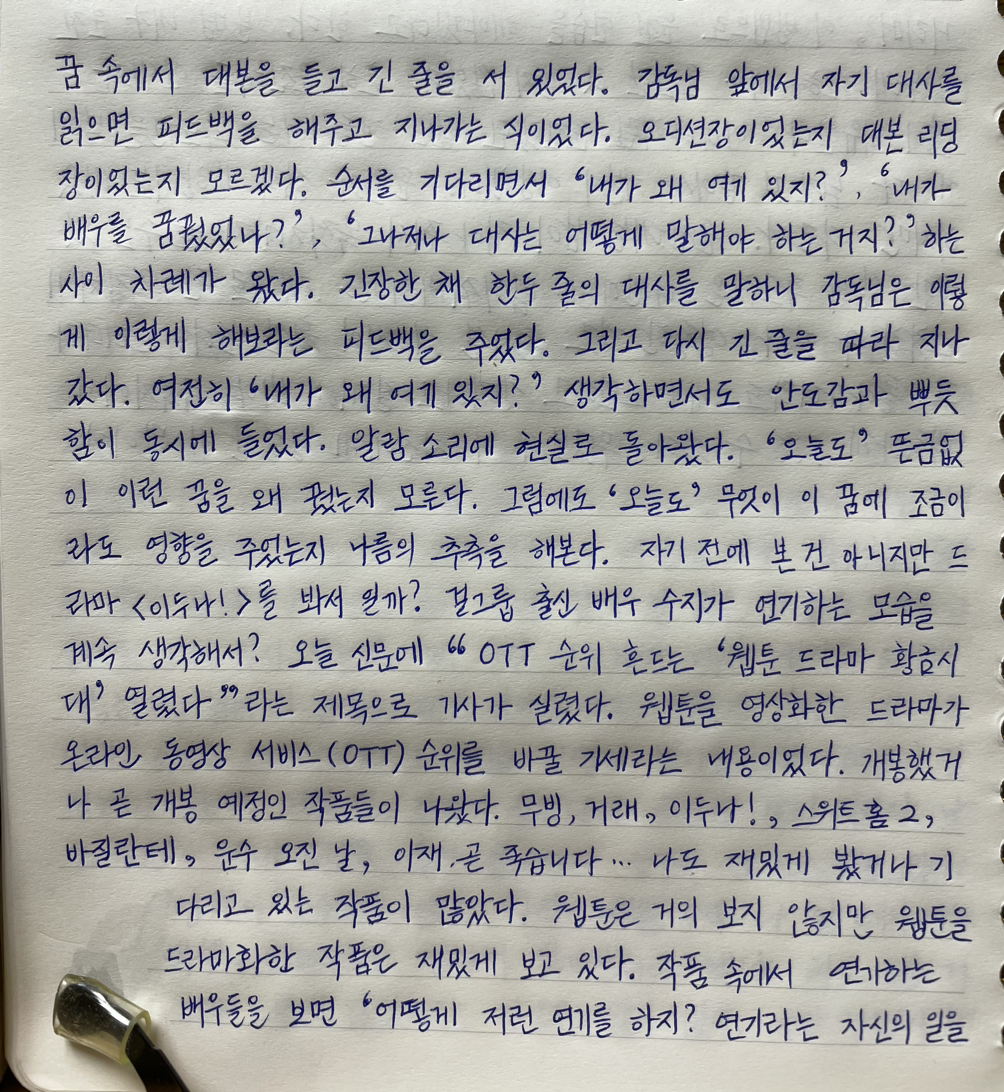 꿈 속에서 대본을 들고 긴 줄을 서 있었다. 감독님 앞에서 자기 대사를
읽으면 피드백을 해주고 지나가는 식이었다. 오디션장이었는지 대본 리딩
장이었는지 모르겠다. 순서를 기다리면서 ‘내가 왜 여기 있지?’, ‘내가
배우를 꿈꿨었나?’, ‘그나저나 대사는 어떻게 말해야 하는거지?’ 하는
사이 차례가 왔다. 긴장한 채 한두 줄의 대사를 말하니 감독님은 이렇
게 이렇게 해보라는 피드백을 주었다. 그리고 다시 긴 줄을 따라 지나
갔다. 여전히 ‘내가 왜 여기 있지?’ 생각하면서도 안도감과 뿌듯
함이 동시에 들었다. 알람 소리에 현실로 돌아왔다. ‘오늘도’ 뜬금없
이 이런 꿈을 왜 꿨는지 모른다. 그럼에도 ‘오늘도’ 무엇이 이 꿈에 조금이
라도 영향을 주었는지 나름의 추측을 해본다. 자기 전에 본 건 아니지만 드
라마 <이두나!>를 봐서 일까? 걸그룹 출신 배우 수지가 연기하는 모습을
계속 생각해서? 오늘 신문에 “OTT 순위 흔드는 ‘웹툰 드라마 황금시
대’ 열렸다”라는 제목으로 기사가 실렸다. 웹툰을 영상화한 드라마가
온라인 동영상 서비스(OTT) 순위를 바꿀 기세라는 내용이었다. 개봉했거
나 곧 개봉 예정인 작품들이 나왔다. 무빙, 거래, 이두나!, 스위트홈 2,
바질란테, 운수 오진 날, 이재, 곧 죽습니다… 나도 재밌게 봤거나 기
다리고 있는 작품이 많았다. 웹툰은 거의 보지 않지만 웹툰을
드라마화한 작품은 재밌게 보고 있다. 작품 속에서 연기하는
배우들을 보면 ‘어떻게 저런 연기를 하지? 연기라는 자신의 일을